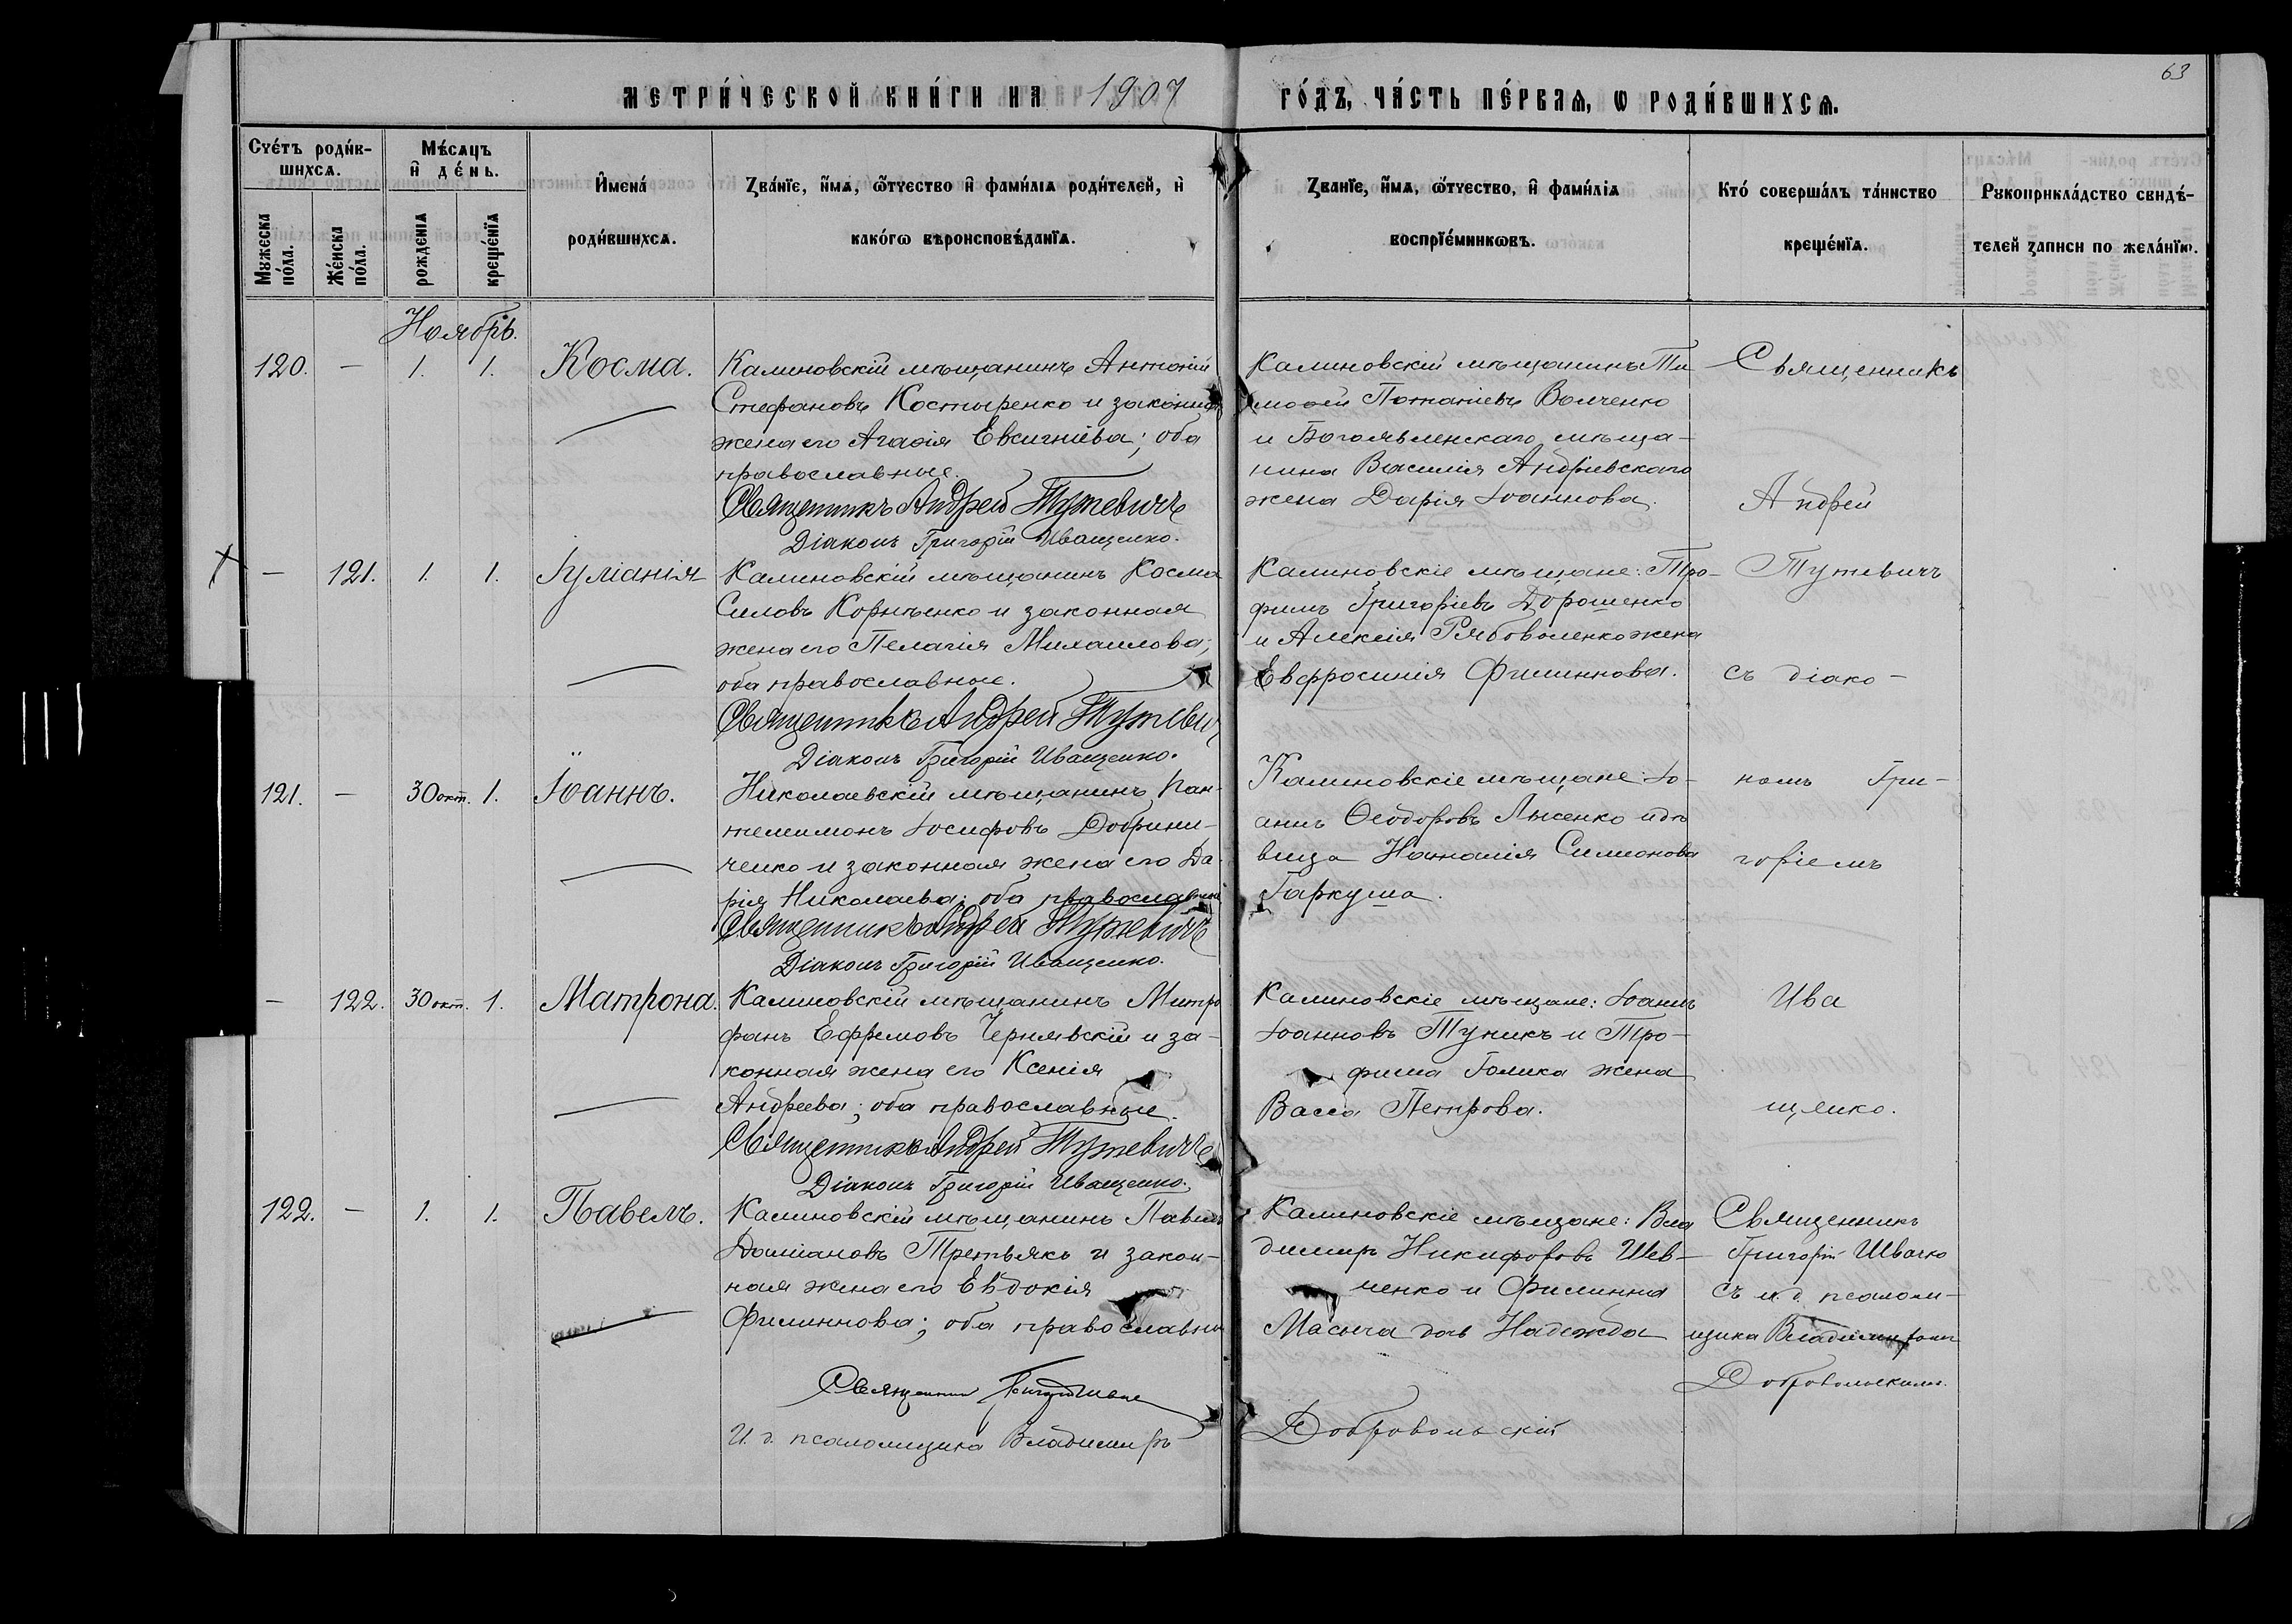 63
МЕТРИ́ЧЕСКОЙ КНИ́ГИ НА 1907 ГО́ДЪ, ЧА́СТЬ ПЕ́РВАѦ, Ѡ РОДИ́ВШИХСѦ.
Счéтъ роди́в-
шихсѧ.
Мꙋжеска
по́ла.
Же́нска
по́ла.
Мѣ́сѧцъ
и҆ де́нь.
рожденіѧ
креще́нїѧ
И҆мена́
роди́вшихсѧ.
Зва́нїе, и҆́мѧ, ѻ҆́тчество и҆ фами́лїѧ роди́телей, и҆
како́гѡ вѣроисповѣ́данїѧ.
Зва́нїе, и҆́мѧ, ѻ҆́тчество, и҆ фами́лїѧ
воспрїе́мникѡвъ.
Кто́ соверша́лъ та́инство
креще́нїѧ.
Рꙋкоприкла́дство свидѣ́-
телей записи по жела́нїю.
Ноябрь.
120. — 1. 1. Косма.
Калиновскій мѣщанинъ Антоній
Стефановъ Костыренко и законная
жена его Агафія Евсигніева; оба
православные.
Священникъ Андрей Тутевичъ
Діаконъ Григорій Иващенко.
Калиновскій мѣщанинъ Ти
мофей Потапіевъ Волченко
и Богоявленскаго мѣща-
нина Василія Андріевскаго
жена Дарія Іоаннова.
Священникъ
Андрей
— 121. 1. 1. Іуліанія
Калиновскій мѣщанинъ Косма
Силовъ Корнѣенко и законная
жена его Пелагія Михаилова;
оба православные.
Священникъ Андрей Тутевичъ
Діаконъ Григорій Иващенко.
Калиновскіе мѣщане: Тро-
фимъ Григоріевъ Дорошенко
и Алексія Рябоволенко жена
Евфросинія Филиппова.
Тутевичъ
съ діако-
121. — 30 окт. 1. Іоаннъ.
Николаевскій мѣщанинъ Пан-
телеимонъ Іосифовъ Добрини-
ченко и законная жена его Да-
рія Николаева; оба православные
Священникъ Андрей Тутевичъ
Діаконъ Григорій Иващенко.
Калиновскіе мѣщане: Іо-
аннъ Ѳеодоровъ Лысенко и дѣ
вица Наталія Симионова
Гаркуша.
номъ Гри-
горіемъ
— 122. 30 окт. 1. Матрона.
Калиновскій мѣщанинъ Митро
фанъ Ефремовъ Чернявскій и за-
конная жена его Ксенія
Андреева; оба православные.
Священникъ Андрей Тутевичъ
Діаконъ Григорій Иващенко.
Калиновскіе мѣщане: Іоаннъ
Іоанновъ Туникъ и Тро-
фима Голика жена
Васса Петрова.
Ива
щенко.
122. — 1. 1. Павелъ.
Калиновскій мѣщанинъ Павелъ
Даміановъ Третьякъ и закон-
ная жена его Евдокія
Филиппова; оба православные
Священникъ Григорій
И. д. псаломщика Владимиръ
Калиновскіе мѣщане: Вла
димиръ Никифоровъ Шев-
ченко и Филиппа
Масыча дочь Надежда
Добровольскій
Священникъ
Григорій Швачко
съ и. д. псалом-
щика Владимиромъ
Добровольскимъ.